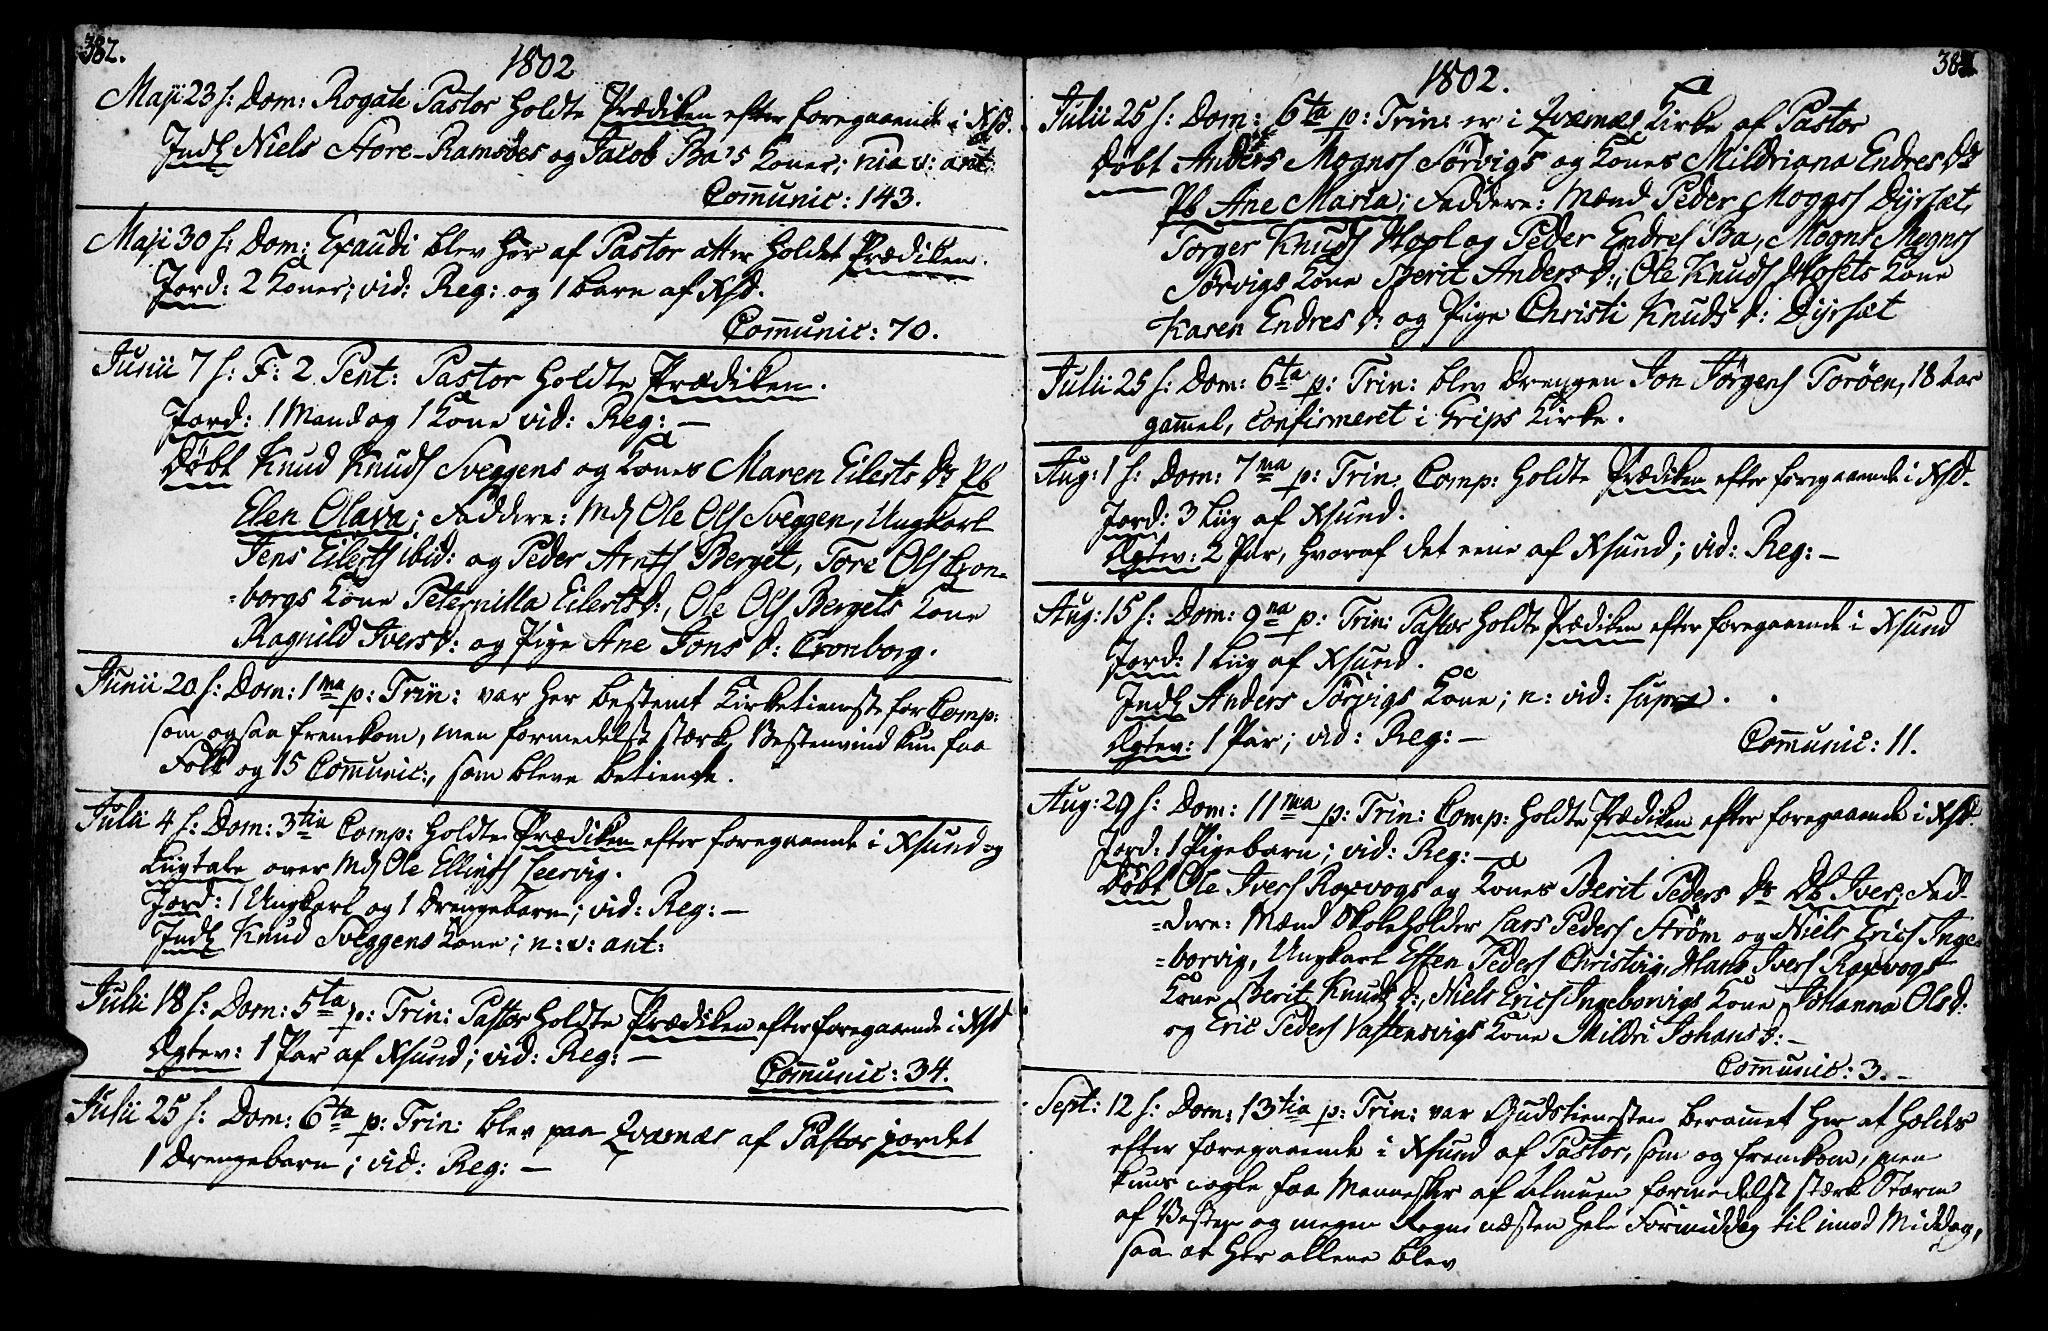 382.
1802
Maji 23 s: Dom: Rogate Pastor holdte Prædiken efter foregaaende i Xsd.
Indl Niels Store-Ramsdes og Jacob Ba's Koner; nia v: ant
Communic: 143.
Maji 30 s: Dom: Exaudi blev her af Pastor atter holdet Prædiken.
Jord: 2 Koner; vid: Reg: og 1 barn af Xsd.
Communic: 70.
Junii 7 s: F: 2 Pent: Pastor holdte Prædiken.
Jord: 1 Mand og 1 Kone vid: Reg: —
Døbt Knud Knuds Sveggens og Kones Maren Eilerts Dr Pb
Elen Olava; Faddere: Md Ole Ols Sveggen, Ungkarl
Jens Eilerts ibid: og Peder Arnts Berget, Tore Ols Cron-
=borgs Kone Peternilla Eilertsd:, Ole Ols Bergets Kone
Ragnild Ivers d: og Pige Ane Jons d: Cronborg.
Junii 20 s: Dom: 1ma p: Trin: var her bestemt Kirketieneste for Comp:
som ogsaa fremkom, men formedelst stærk Vestenvind kun faa
Folk og 15 Communic:, som bleve betiente.
Julii 4 s: Dom: 3tia Comp: holdte Prædiken efter foregaaende i Xsund og
Liigtale over Md Ole Ellings Leervig.
Jord: 1 Ungkarl og 1 Drengebarn; vid: Reg: —
Indl Knud Sveggens Kone; n: v: ant:
Julii 18 s: Dom: 5ta p: Trin: Pastor holdte Prædiken efter foregaaende i Xsd
Ægtev: 1 Par af Xsund; vid: Reg: —
Communic: 34.
Julii 25 s: Dom: 6ta p: Trin: blev paa Qværnæs af Pastor jordet
1 Drengebarn; vid: Reg: —
1802.
Julii 25 s: Dom: 6ta p: Trin: er i Qværnæs Kirke af Pastor
Døbt Anders Mogns Sørvigs og Kones Mildriana Endres Dr
Pb Ane Maria; Faddere: Mænd Peder Moggs Dyrsæt
Torger Knuds Hopl og Peder Endres Ba, Mogns Mogns
Sørvigs Kone Berit Anders d:, Ole Knuds Mosets Kone
Karen Endres d: og Pige Christi Knuds d: Dyrsæt
Julii 25 s: Dom: 6ta p: Trin: blev Drengen Jon Jørgens Torøen, 18 aar
gamel, confirmeret i Grips Kirke.
Aug: 1 s: Dom: 7ma p: Trin: Comp: holdte Prædiken efter foregaaende i Xsd.
Jord: 3 Liig af Xsund.
Ægtev: 2 Par, hvoraf det eene af Xsund; vid: Reg: —
Aug: 15 s: Dom: 9na p: Trin: Pastor holdte Prædiken efter foregaaende i Xsund
Jord: 1 Liig af Xsund.
Indl Anders Sørvigs Kone; n: vid: supra.
Ægtev: 1 Par; vid: Reg: —
Communic: 11.
Aug: 29 s: Dom: 11ma p: Trin: Comp: holdte Prædiken efter foregaaende i Xsd.
Jord: 1 Pigebarn; vid: Reg: —
Døbt Ole Ivers Roxvogs og Kones Berit Peders Dr Db Iver; Fad-
=dere: Mænd Skoleholder Lars Peders Strøm og Niels Erics Inge-
=borvig, Ungkarl Esten Peders Christvig, Hans Ivers Roxvogs
Kone Berit Knuds d:, Niels Erics Ingeborvigs Kone Johanna Ols d:
og Eric Peders Vastensvigs Kone Mildri Johans d: —
Communic: 3. —
Sept: 12 s: Dom: 13tia p: Trin: var Gudstienesten berammet her at holdes
efter foregaaende i Xsund af Pastor, som og fremkom, men
kuns nogle faa Mennesker af Almuen formedelst stærk Storm
af Vesten og megen Regn næsten hele Formiddag til imod Middag,
saa at her allene blev